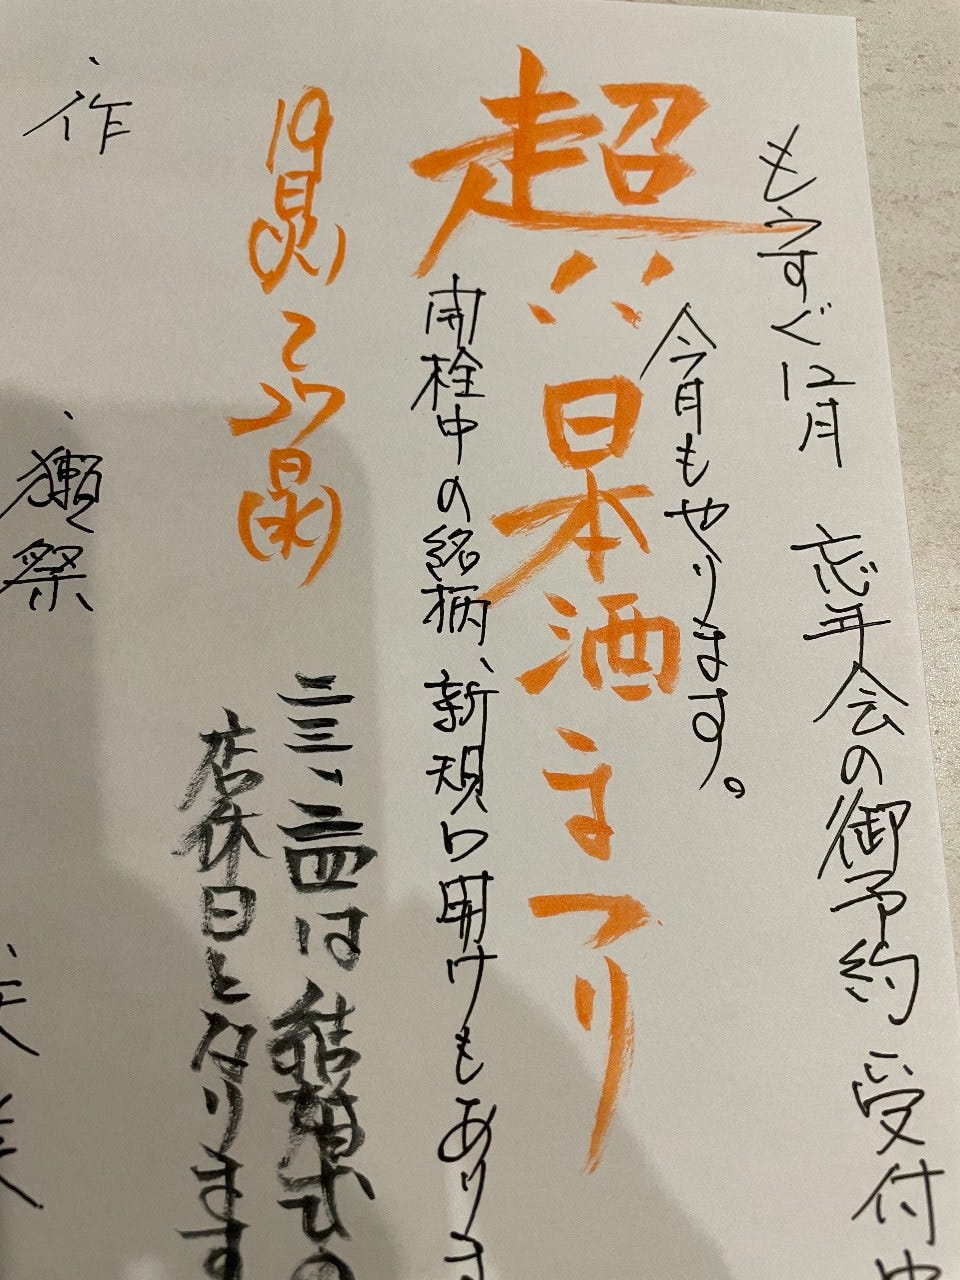 もうすぐ12月 忘年会の御予約 受付中
今月もやります。
超!!日本酒まつり
開栓中の銘柄、新規口開けもありま
19日(火)〜27日(水)
二三、二四は結婚式の
店休日となります
、作
、獺祭